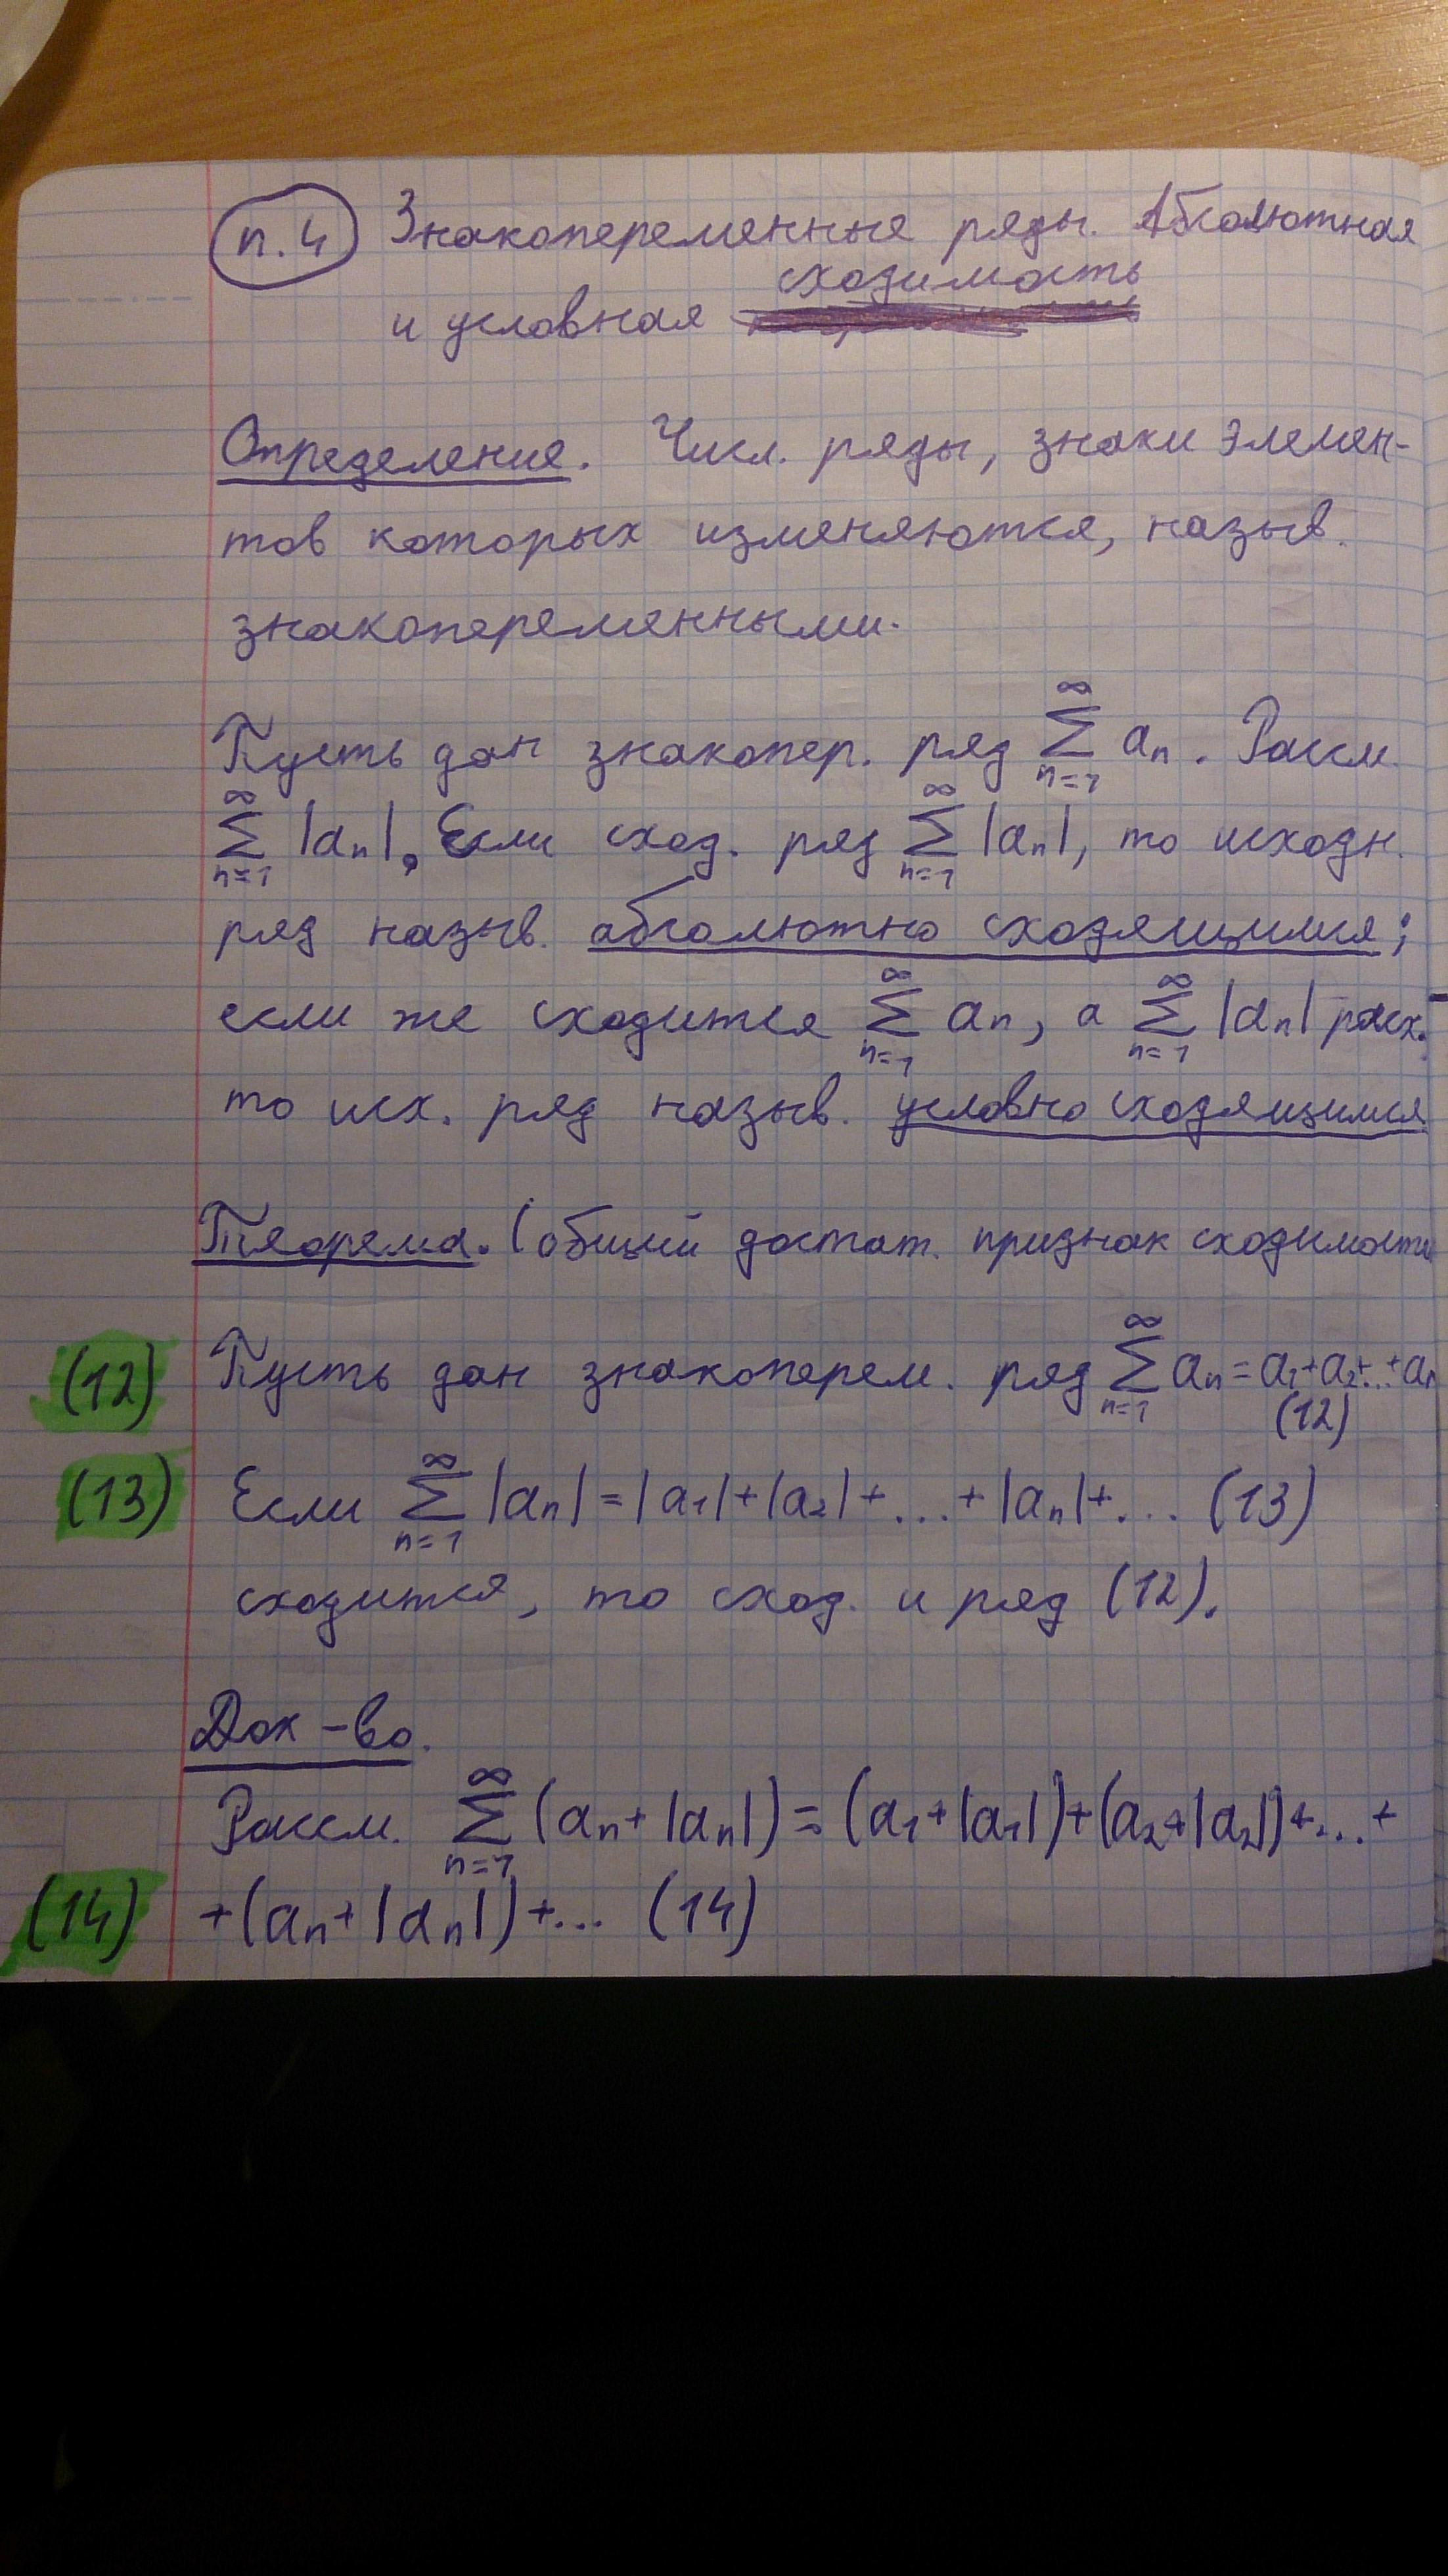 п.4 Знакопеременные ряды. Абсолютная
сходимость
и условная
Определение. Числ. ряды, знаки элемен-
тов которых изменяются, назыв.
знакопеременными.
Пусть дан знакопер. ряд ∞∑n=1 aₙ. Рассм.
∞∑n=1 |aₙ|. Если сход. ряд ∞∑n=1 |aₙ|, то исходн.
ряд назыв. абсолютно сходящимся;
если же сходится ∞∑n=1 aₙ, а ∞∑n=1 |aₙ| расх.
то исх. ряд назыв. условно сходящимся
Теорема. (общий достат. признак сходимости
(12) Пусть дан знакоперем. ряд ∞∑n=1 aₙ = a₁+a₂+...+aₙ
(12)
(13) Если ∞∑n=1 |aₙ| = |a₁|+|a₂|+...+|aₙ|+... (13)
сходится, то сход. и ряд (12).
Док-во.
Рассм. ∞∑n=1 (aₙ+|aₙ|) = (a₁+|a₁|)+(a₂+|a₂|)+...+
(14) +(aₙ+|aₙ|)+... (14)